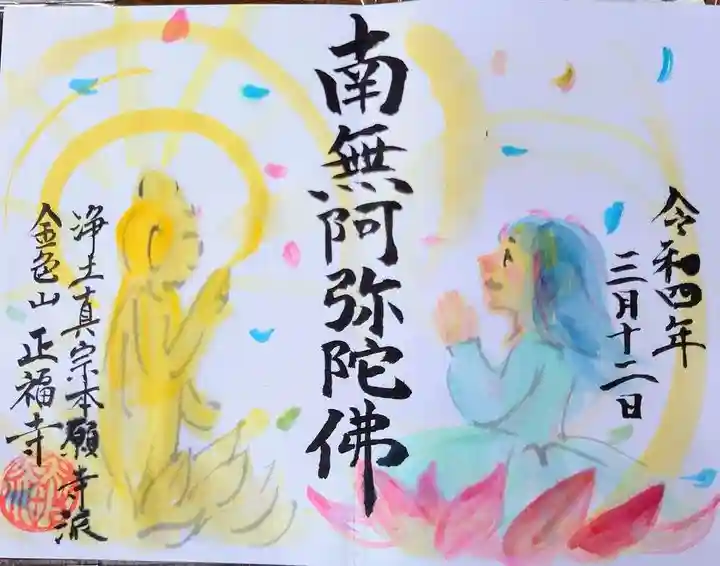 令和四年
三月十二日
南無阿弥陀佛
浄土真宗本願寺派
金色山 正福寺